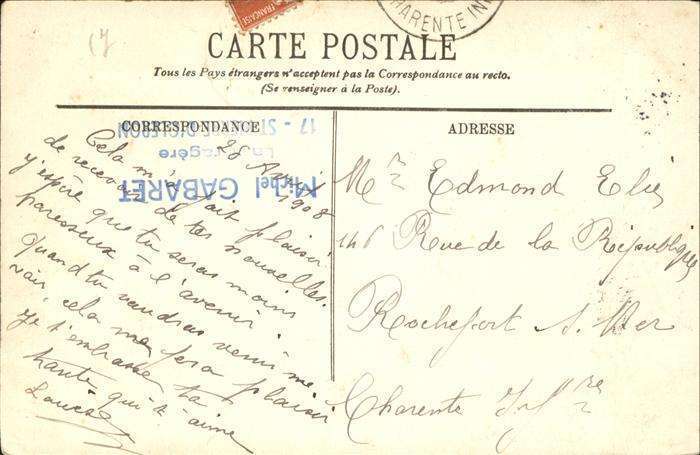 CARTE POSTALE
Tous les Pays étrangers n'acceptent pas la Correspondance au recto.
(Se renseigner à la Poste).
CORRESPONDANCE
28 Avril 1908
Cela m'a fait plaisir
de recevoir de tes nouvelles.
J'espère que tu seras moins
paresseux à l'avenir.
Quand tu voudras venir me
voir, cela me fera plaisir
Je t'embrasse ta
tante qui t'aime
Louise
ADRESSE
Mr Edmond Elie
146 Rue de la République
Rochefort s. Mer
Charente Infre
Michel GABARET
La Fragère
17 - ST
CHARENTE INF
FRANÇAISE